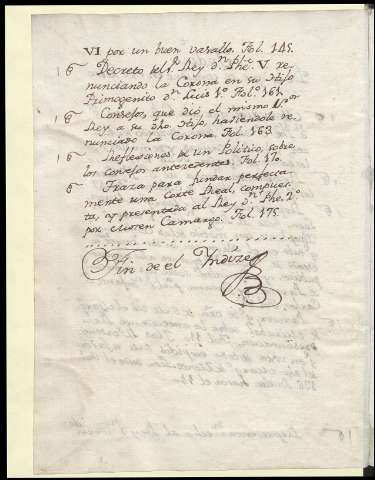 VI por un buen vasallo. Fol. 145.
Decreto del Sr. Rey Dn. Phe. V. re-
nunciando la Corona en su Hijo
Primogenito Dn. Luis 1º Fol. 161.
Consejos, que dió el mismo Sor
Rey a su dho. Hijo, haviendole re-
nunciado la Corona. Fol. 163.
Reflexiones de un Politico, sobre
los consejos antecedentes. Fol. 170.
Traza para fundar perfecta-
mente una Corte Real, compues-
ta, y presentada al Rey Dn. Phe. 2º
por Camargo. Fol. 175.
Fin de el Yndize